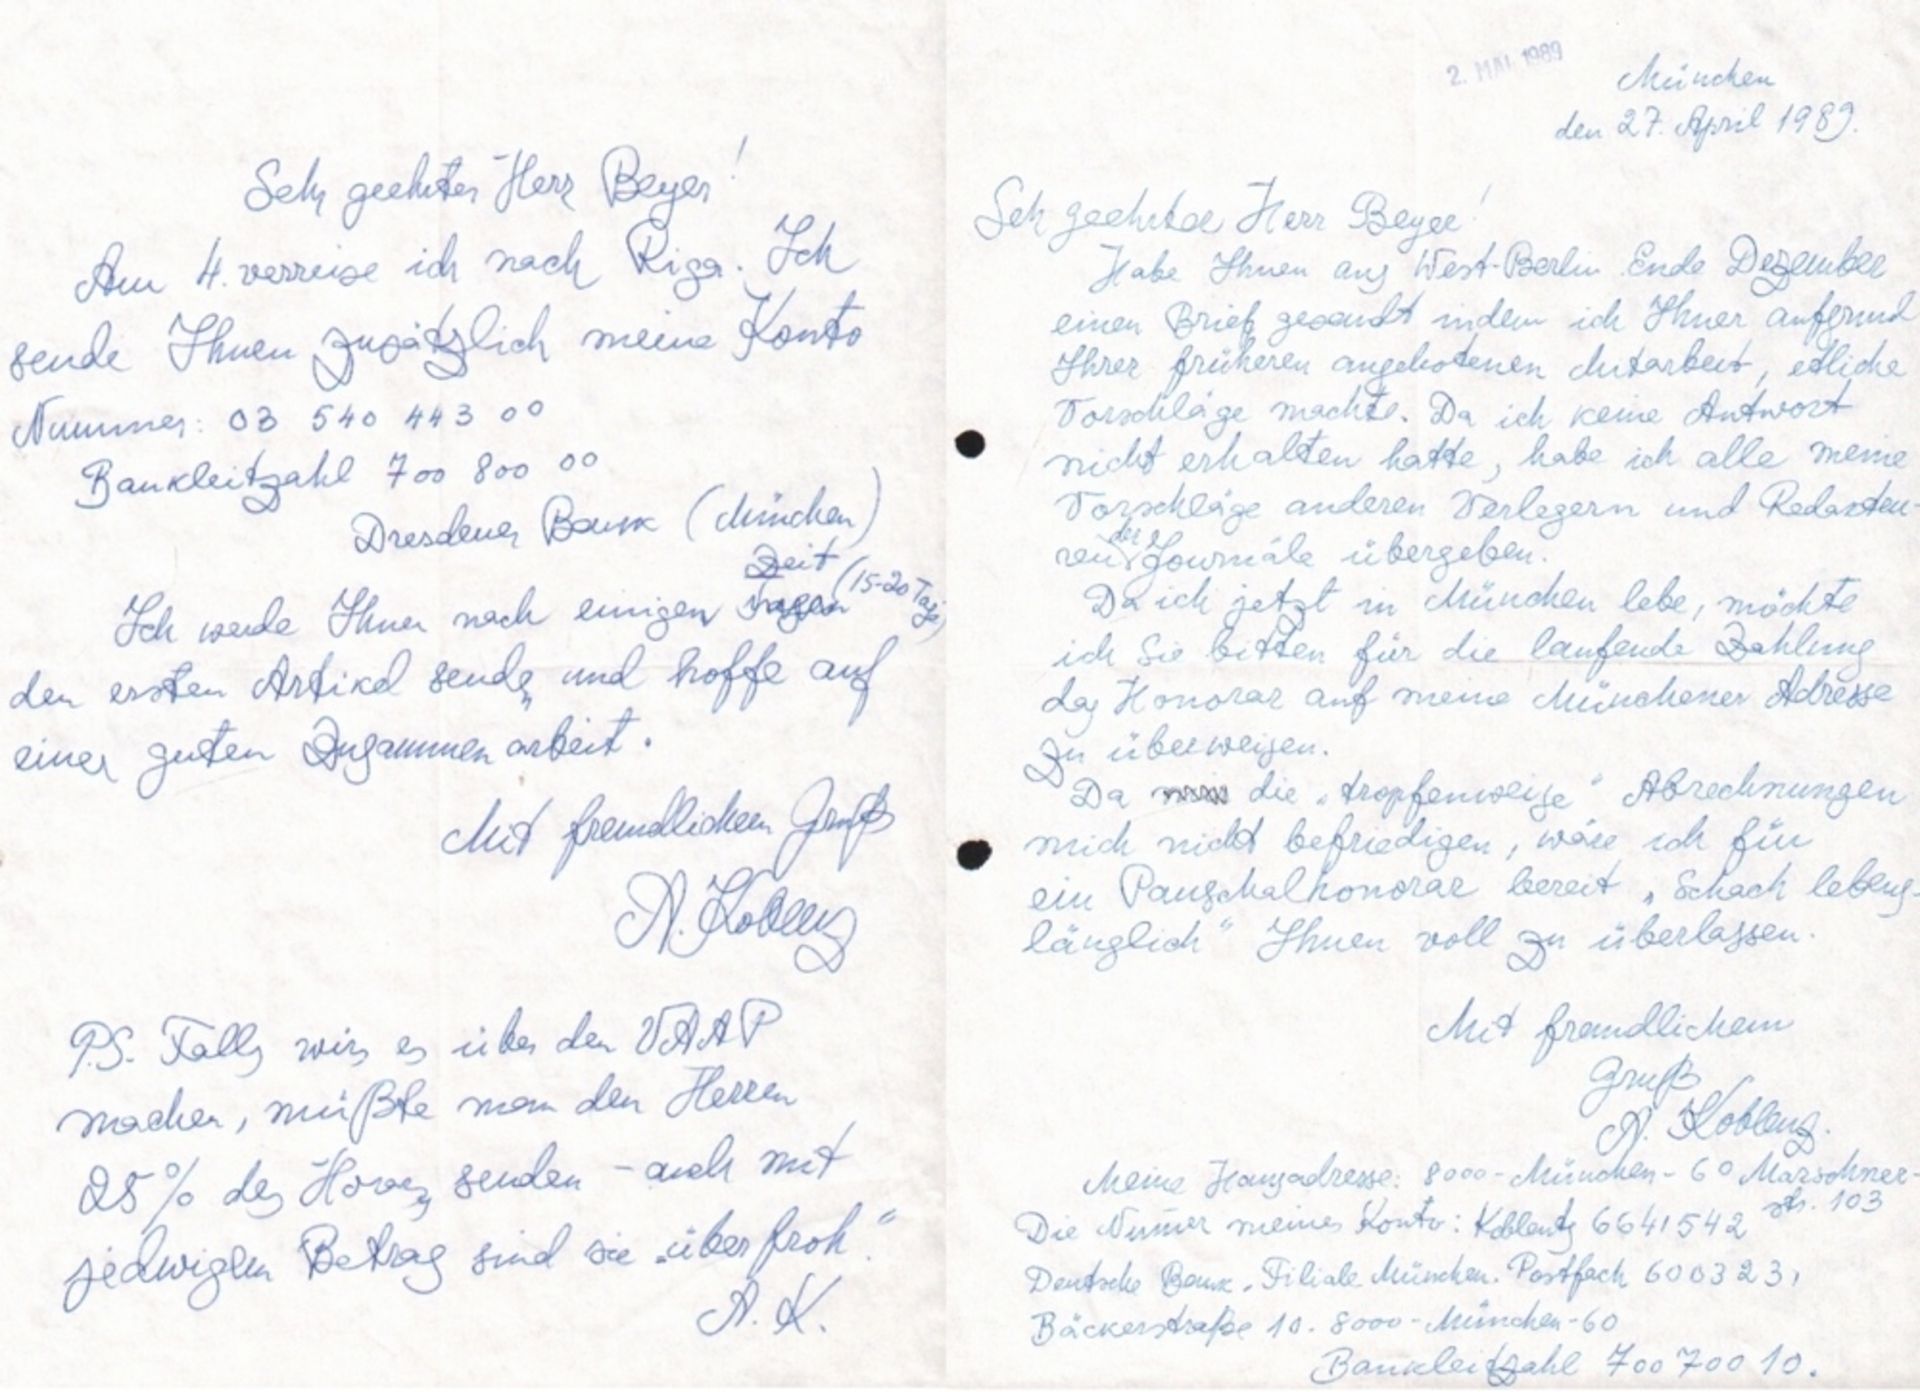 Sehr geehrter Herr Beyer!
Am 4. verreise ich nach Riga. Ich
sende Ihnen zusätzlich meine Konto
Nummer: 03 540 443 00
Bankleitzahl 700 800 00
Dresdener Bank (München)
Zeit (15-20 Tage)
Ich werde Ihnen nach einigen Tagen
den ersten Artikel senden und hoffe auf
einer guten Zusammenarbeit.
Mit freundlichem Gruß
A. Koblenz
P.S. Falls wir es über den VAAP
machen, müßte man den Herren
25% des Honor. senden – auch mit
jedwigen Betrag sind sie „überfroh."
A. K.
2. MAI 1989
München
den 27. April 1989.
Sehr geehrter Herr Beyer!
Habe Ihnen aus West-Berlin Ende Dezember
einen Brief gesandt indem ich Ihner aufgrund
Ihrer früheren angebotenen Mitarbeit, etliche
Vorschläge machte. Da ich keine Antwort
nicht erhalten hatte, habe ich alle meine
Vorschläge anderen Verlegern und Redakteu-
ren der Journale übergeben.
Da ich jetzt in München lebe, möchte
ich Sie bitten für die laufende Zahlung
das Honorar auf meine Münchener Adresse
zu überweisen.
Da die „tropfenweise" Abrechnungen
mich nicht befriedigen, wäre ich für
ein Pauschalhonorar bereit „Schach lebens-
länglich" Ihnen voll zu überlassen.
Mit freundlichem
Gruß
A. Koblenz.
Meine Hausadresse: 8000-München-60 Marschner-
str. 103
Die Numer meines Konto: Koblentz 6641542
Deutsche Bank, Filiale München. Postfach 600323,
Bäckerstraße 10. 8000-München-60
Bankleitzahl 700 700 10.